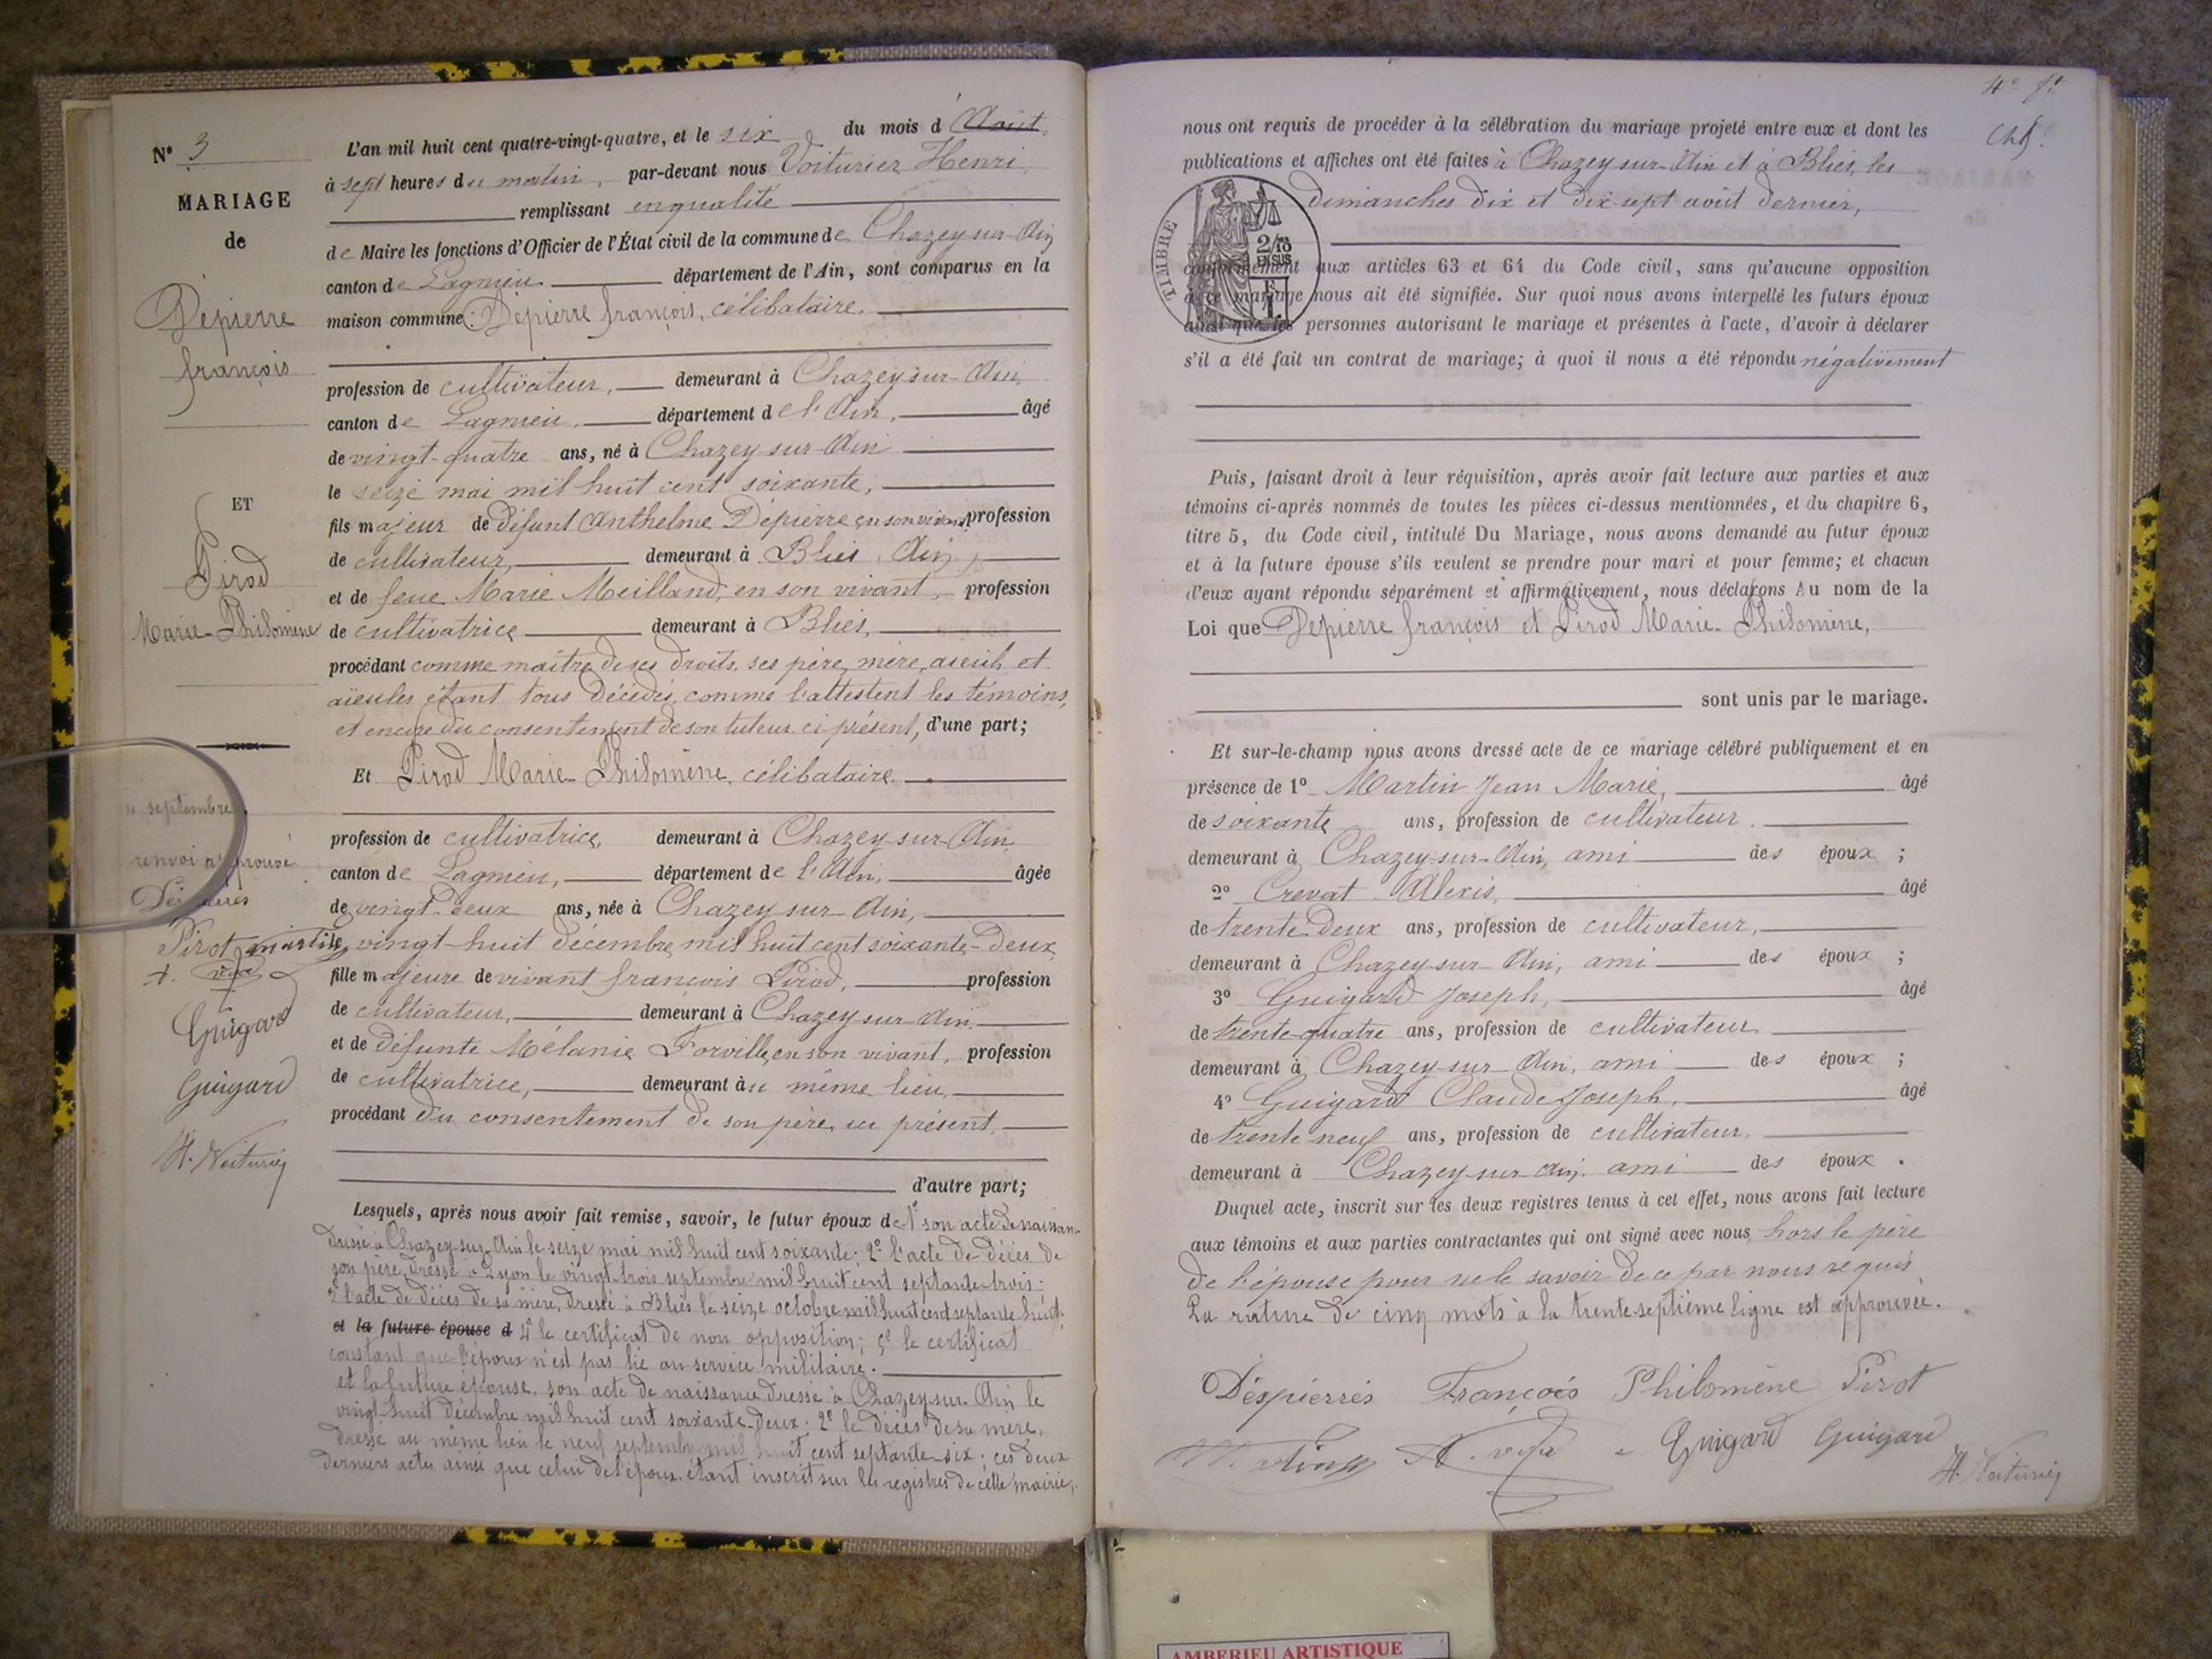 N° 3
MARIAGE
de
Dépierre
françois
ET
Pirod
Marie-Philomène
septembre
renvoi approuvé
Pirot
Guigard
Guigard
H. Voiturier
L'an mil huit cent quatre-vingt-quatre, et le six du mois d'Août,
à sept heures du matin, par-devant nous Voiturier Henri
remplissant en qualité
de Maire les fonctions d'Officier de l'État civil de la commune de Chazey-sur-Ain
canton de Lagnieu département de l'Ain, sont comparus en la
maison commune: Dépierre françois, célibataire.
profession de cultivateur, demeurant à Chazey-sur-Ain
canton de Lagnieu, département de l'Ain, âgé
de vingt-quatre ans, né à Chazey-sur-Ain
le seize mai mil huit cent soixante,
fils majeur de défunt Anthelme Dépierre en son vivant profession
de cultivateur, demeurant à Blies, Ain,
et de feue Marie Meilland, en son vivant, profession
de cultivatrice demeurant à Blies,
procédant comme maître de ses droits, ses père, mère, aïeuls et
aïeules étant tous décédés, comme l'attestent les témoins,
et encore du consentement de son tuteur ci-présent, d'une part;
Et Pirod Marie-Philomène, célibataire
profession de cultivatrice, demeurant à Chazey-sur-Ain
canton de Lagnieu, département de l'Ain, âgée
de vingt-deux ans, née à Chazey-sur-Ain,
le vingt-huit décembre mil huit cent soixante-deux,
fille majeure de vivant françois Pirod, profession
de cultivateur, demeurant à Chazey-sur-Ain
et de défunte Mélanie Forville, en son vivant, profession
de cultivatrice, demeurant au même lieu,
procédant du consentement de son père, ici présent,
d'autre part;
Lesquels, après nous avoir fait remise, savoir, le futur époux de 1° son acte de naissance
dressé à Chazey-sur-Ain le seize mai mil huit cent soixante; 2° l'acte de décès de
son père, dressé à Lyon le vingt-trois septembre mil huit cent septante-trois;
3° l'acte de décès de sa mère, dressé à Blies le seize octobre mil huit cent septante-huit;
et la future épouse d 4° le certificat de non opposition; 5° le certificat
constant que l'époux n'est pas lié au service militaire.
et la future épouse, son acte de naissance dressé à Chazey-sur-Ain le
vingt-huit décembre mil huit cent soixante-deux; 2° le décès de sa mère,
dressé au même lieu le neuf septembre mil huit cent septante-six; ces deux
derniers actes ainsi que celui de l'époux étant inscrit sur les registres de cette mairie,
nous ont requis de procéder à la célébration du mariage projeté entre eux et dont les
publications et affiches ont été faites à Chazey-sur-Ain et à Blies, les
dimanches dix et dix-sept août dernier,
TIMBRE
2/10
EN SUS
conformément aux articles 63 et 64 du Code civil, sans qu'aucune opposition
à ce mariage nous ait été signifiée. Sur quoi nous avons interpellé les futurs époux
ainsi que les personnes autorisant le mariage et présentes à l'acte, d'avoir à déclarer
s'il a été fait un contrat de mariage; à quoi il nous a été répondu négativement
Puis, faisant droit à leur réquisition, après avoir fait lecture aux parties et aux
témoins ci-après nommés de toutes les pièces ci-dessus mentionnées, et du chapitre 6,
titre 5, du Code civil, intitulé Du Mariage, nous avons demandé au futur époux
et à la future épouse s'ils veulent se prendre pour mari et pour femme; et chacun
d'eux ayant répondu séparément et affirmativement, nous déclarons Au nom de la
Loi que Dépierre françois et Pirod Marie-Philomène,
sont unis par le mariage.
Et sur-le-champ nous avons dressé acte de ce mariage célébré publiquement et en
présence de 1° Martin Jean Marie, âgé
de soixante ans, profession de cultivateur.
demeurant à Chazey-sur-Ain, ami des époux;
2° Crevat Alexis, âgé
de trente-deux ans, profession de cultivateur,
demeurant à Chazey-sur-Ain, ami des époux;
3° Guigard Joseph, âgé
de trente-quatre ans, profession de cultivateur
demeurant à Chazey-sur-Ain, ami des époux;
4° Guigard Claude Joseph, âgé
de trente-neuf ans, profession de cultivateur.
demeurant à Chazey-sur-Ain, ami des époux.
Duquel acte, inscrit sur les deux registres tenus à cet effet, nous avons fait lecture
aux témoins et aux parties contractantes qui ont signé avec nous, hors le père
de l'épouse pour ne le savoir de ce par nous requis
La rature de cinq mots à la trente-septième ligne est approuvée.
Déspierrés François Philomène Pirot
Guigard Guigard
H. Voiturier
AMBERIEU ARTISTIQUE